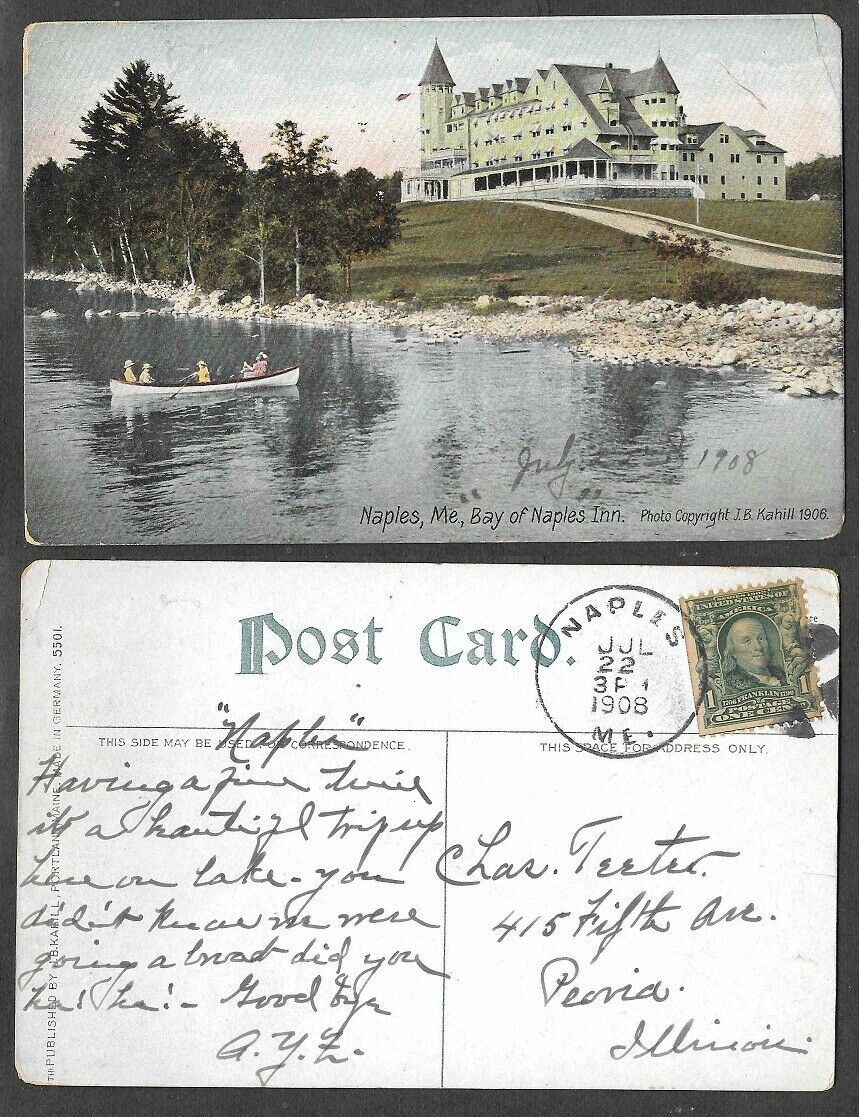 July 1908
Naples, Me., "Bay of Naples" Inn. Photo Copyright J.B. Kahill 1906.
Post Card.
NAPLES
JUL
22
3 P M
1908
ME.
UNITED STATES OF
AMERICA
1706 FRANKLIN 1790
1 POSTAGE 1
ONE CENT
THIS SIDE MAY BE USED FOR CORRESPONDENCE.
THIS SPACE FOR ADDRESS ONLY.
THE PUBLISHED BY J.B. KAHILL, PORTLAND, MAINE. MADE IN GERMANY. 5501.
"Naples"
Having a fine time
its a beautiful trip up
here on lake - you
didn't know we were
going abroad did you
ha! ha! - Good bye
A.Y.L.
Chas. Teeter.
415 Fifth Ave.
Peoria.
Illinois.